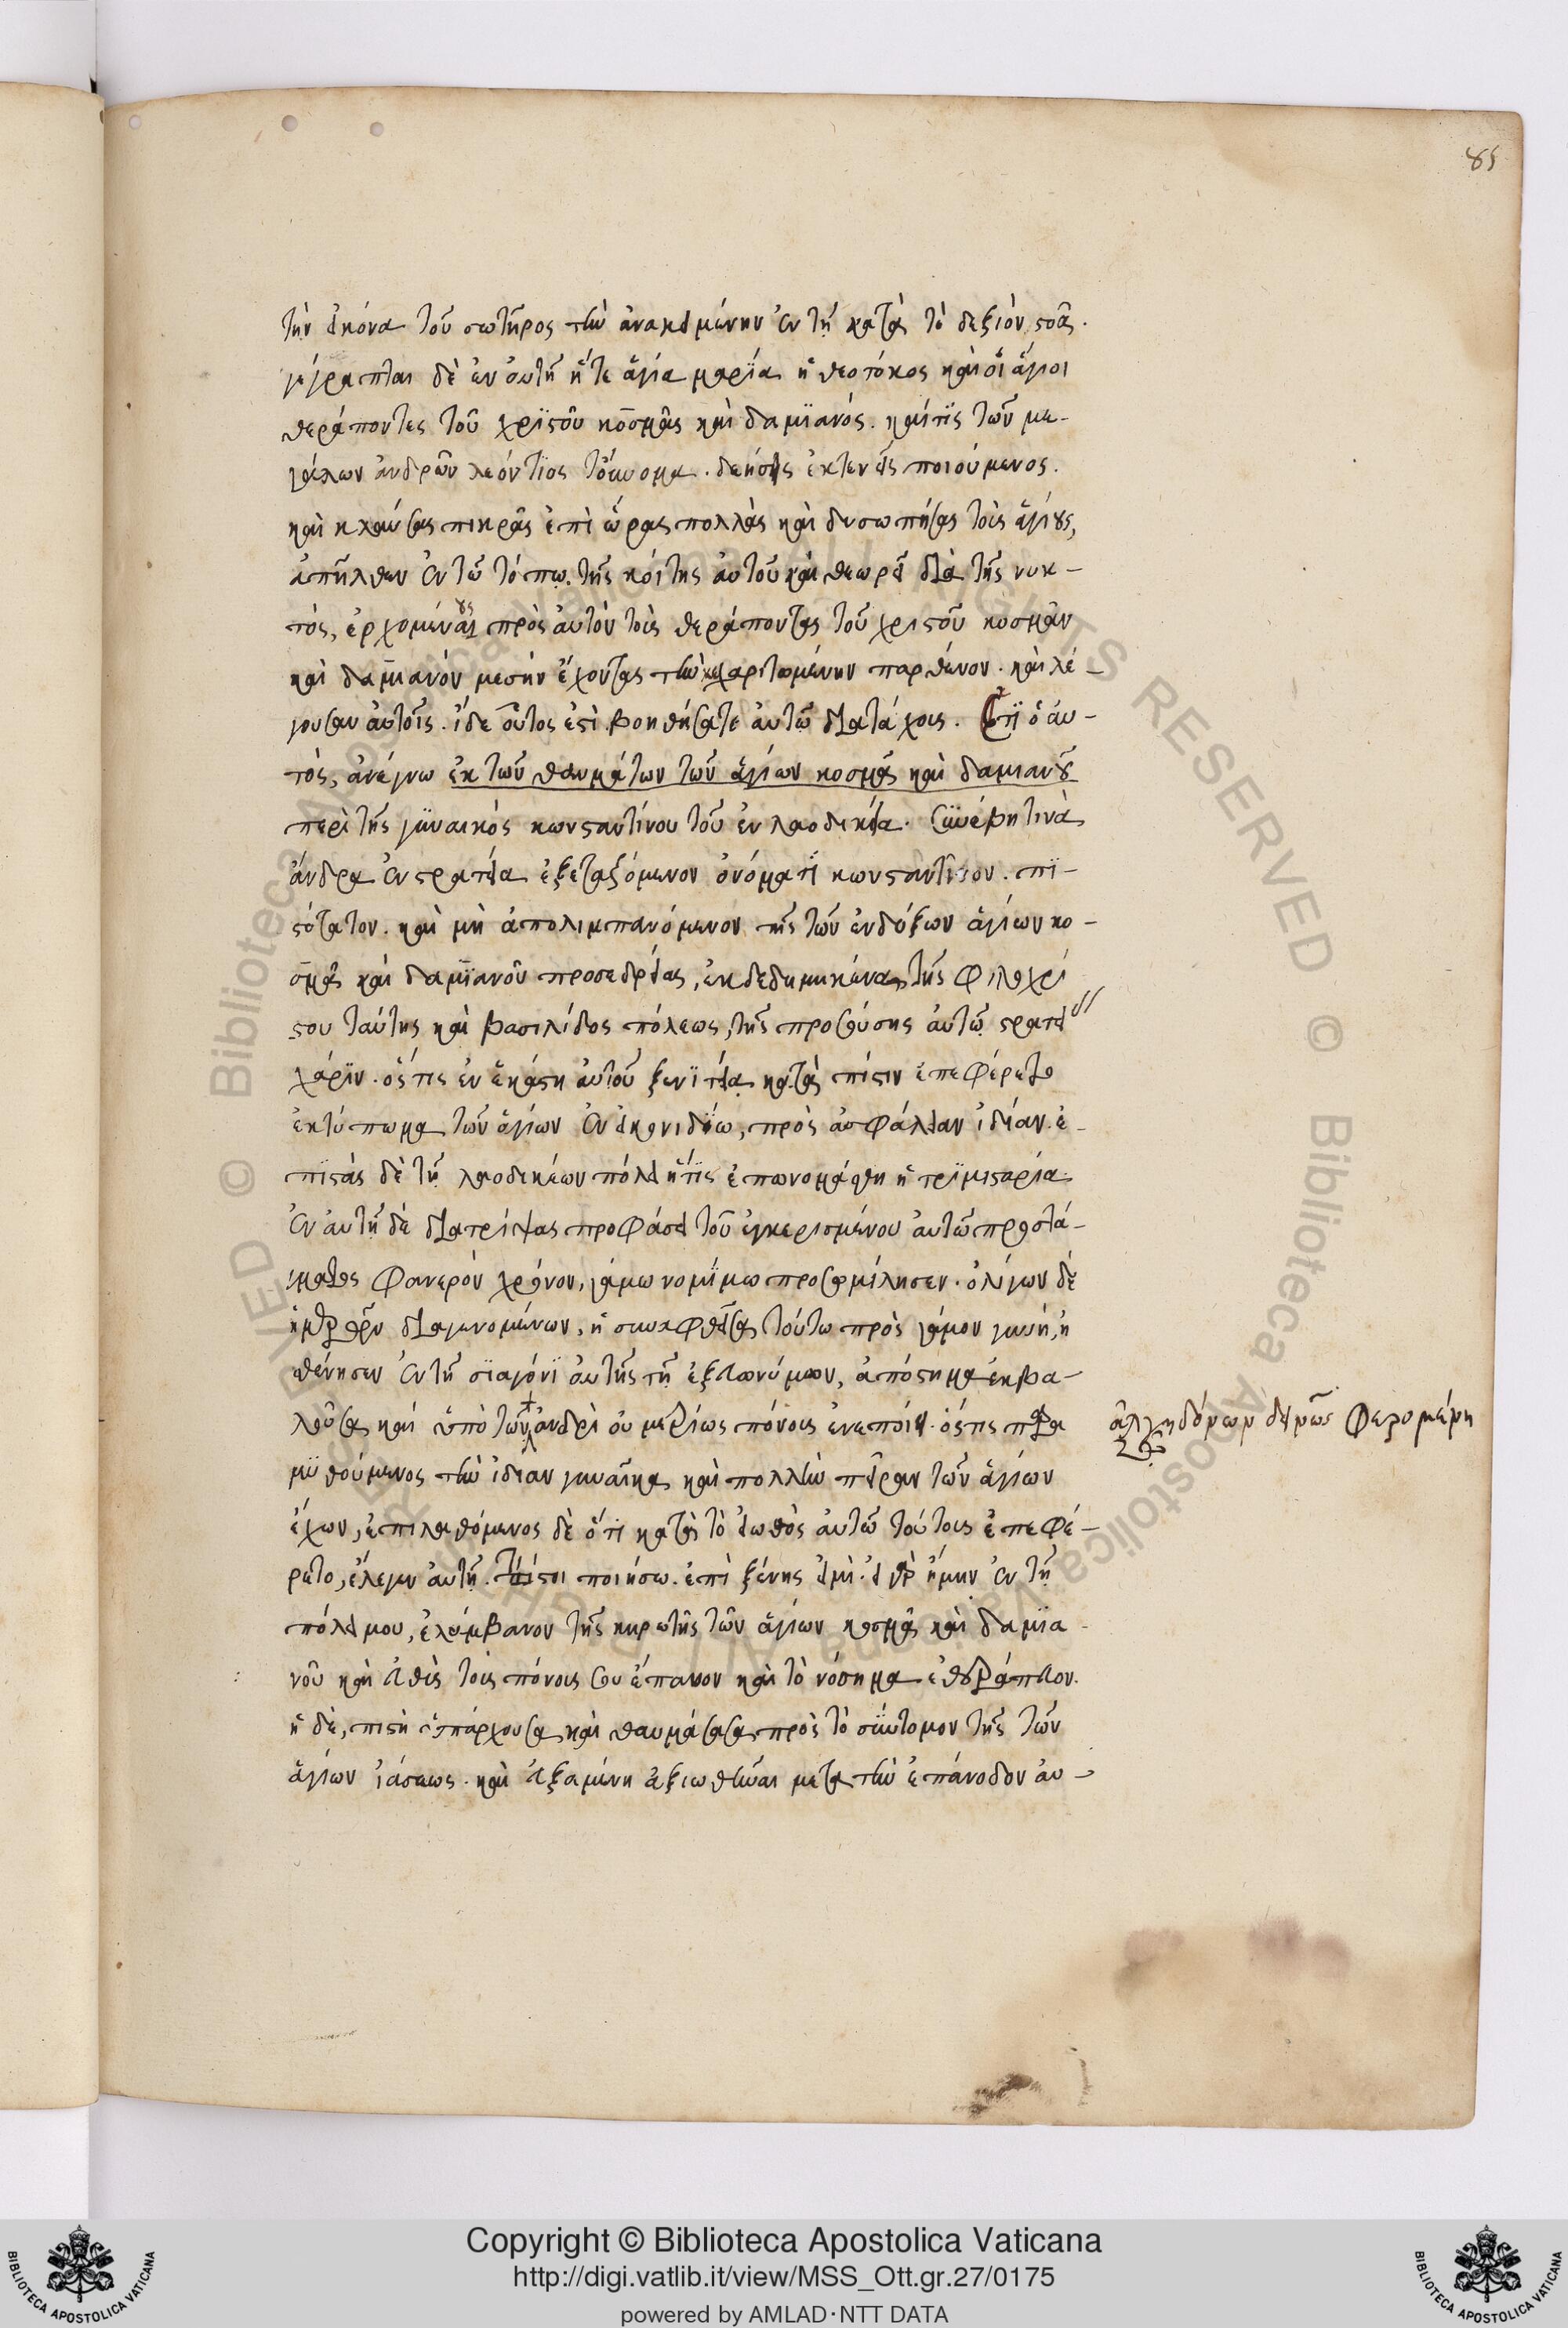 85
τὴν εἰκόνα τοῦ σωτῆρος τὴν ἀνακειμένην ἐν τῆ κατὰ τὸ δεξιὸν στοᾶ.
γέγραπται δὲ ἐν αὐτῆ ἥτε ἁγία μαρΐα ἡ θεοτόκος καὶ οἱ ἅγιοι
θεράποντες τοῦ χρϊστοῦ κοσμᾶς καὶ δαμϊανός. καίτϊς τῶν με-
γάλων ἀνδρῶν λεόντϊος τοὔνομα. δεήσεις ἐκτενεῖς ποιούμενος.
καὶ κλαύσας πικρῶς ἐπὶ ὥρας πολλὰς καὶ δυσωπήσας τοὺς ἁγίους,
ἀπῆλθεν ἐν τῶ τόπω τῆς κοίτης αὐτοῦ καὶ θεωρεῖ διὰ τῆς νυκ-
τὸς, ἐρχομένους πρὸς αὐτὸν τοὺς θεράποντας τοῦ χριστοῦ κοσμᾶν
καὶ δαμιανὸν μεσὴν ἔχοντας τὴν κεχαριτωμένην παρθένον. καὶ λέ-
γουσαν αὐτοῖς. ἴδε οὗτος ἐστὶ βοηθήσατε αὐτῶ διατάχους. Ὅτϊ ὁ αὐ-
τὸς, ἀνέγνω ἐκ τῶν θαυμάτων τῶν ἁγίων κοσμᾶ καὶ δαμιανοῦ
περὶ τῆς γϋναικὸς κωνσταντίνου τοῦ ἐν λαοδικεία. Συνέβη τινὰ
ἄνδρα ἐν στρατεία ἐξεταζόμενον ὀνόματϊ κωνσταντῖνον. πϊ-
στότατον. καὶ μὴ ἀπολιμπανόμενον τῆς τῶν ἐνδόξων ἁγίων κο-
σμᾶ καὶ δαμϊανοῦ προσεδρείας, ἐκδεδημηκέναι τῆς φιλοχρί
στου ταύτης καὶ βασιλίδος πόλεως, τῆς προσούσης αὐτῶ στρατεί
χάρϊν. ὅστις ἐν ἑκάστη αὐτοῦ ξενϊτεία κατὰ πίστιν ἐπεφέρετο
ἐκτύπωμα τῶν ἁγίων ἐν εἰκονιδίω, πρὸς ἀσφάλειαν ἰδίαν. ἐ-
πϊστὰς δὲ τῆ λαοδικέων πόλει ἥτϊς ἐπωνομάσθη ἡ τρϊμισταρία.
ἐν αὐτῆ δὲ διατρίψας προφάσει τοῦ ἐγκερισμένου αὐτῶ προστά-
γματος φανερὸν χρόνον, γάμω νομϊμω προσομίλησεν. ὀλίγων δὲ
ἡμερῶν διαγενομένων, ἡ συναφθεῖσα τούτω πρὸς γάμον γυνὴ, ἠ
σθένησεν ἐν τῆ σϊαγόνϊ αὐτῆς τῆ ἐξ εὐωνύμων, ἀπόστημα ἐκβα-
λοῦσα καὶ ὑπὸ τῶν ἀνδρὶ οὐ μετρίως πόνους ἐνεποίει. ὅστις παρα
μϋθούμενος τὴν ἰδίαν γυναῖκα καὶ πολλὴν πεῖραν τῶν ἁγίων
ἔχων, ἐπιλαθόμενος δὲ ὅτϊ κατὰ τὸ εἰωθὸς αὐτῶ τούτους ἐπεφέ-
ρετο, ἔλεγεν αὐτῆ. Τί σοι ποιήσω. ἐπὶ ξένης εἰμὶ. εἰ γὰρ ἤμην ἐν τῆ
πόλει μου, ἐλάμβανον τῆς κηρωτῆς τῶν ἁγίων κοσμᾶ καὶ δαμϊα-
νοῦ καὶ εὐθὺς τοὺς πόνους σου ἔπαυον καὶ τὸ νόσημα ἐθεράπευον.
ἡ δὲ, πιστὴ ὑπάρχουσα καὶ θαυμάσασα πρὸς τὸ σύντομον τῆς τῶν
ἁγίων ἰάσεως. καὶ εὐξαμένη ἀξιωθῆναι μετὰ τὴν ἐπάνοδον αὐ-
ἀλγηδόνων δεινῶς φερομένη
Copyright © Biblioteca Apostolica Vaticana
http://digi.vatlib.it/view/MSS_Ott.gr.27/0175
powered by AMLAD·NTT DATA